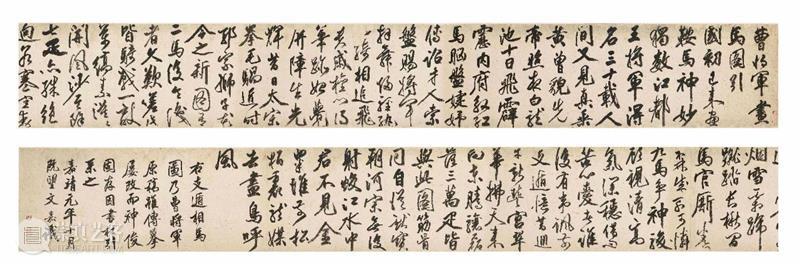 曹將軍畫
馬圖引
國初已來畫
鞍馬神妙
獨數江都
王將軍得
名三十載人
間又見真乘
黃曾貌先
帝照夜白龍
池十日飛霹
靂內府殷紅
馬腦盤婕妤
傳詔才人索
盤賜將軍
拜舞歸輕紈
細綺相追飛
貴戚權門得
筆跡始覺
屏障生光
輝昔日太宗
拳毛騧近時
郭家獅子花
今之新圖有
二馬復令識
者久歎嗟此
皆騎戰一敵
萬縞素漠漠
開風沙其餘
七匹亦殊絕
迥若寒空動
烟雪霜蹄
蹴踏長楸間
馬官廝養
森成列可憐
九馬爭神駿
顧視清高
氣深穩借問
苦心愛者誰
後有韋諷前
支遁憶昔巡
幸新豐宮翠
華拂天來
向東騰驤磊
落三萬匹皆
與此圖筋骨
同自從獻寶
朝河宗無復
射蛟江水中
君不見金
粟堆前松
柏裏龍媒
去盡鳥呼
風
右支遁相馬
圖乃曹將軍
原稿雖傳摹
屢改而神俊
固存因書引
系之
嘉靖元年八月
既望文